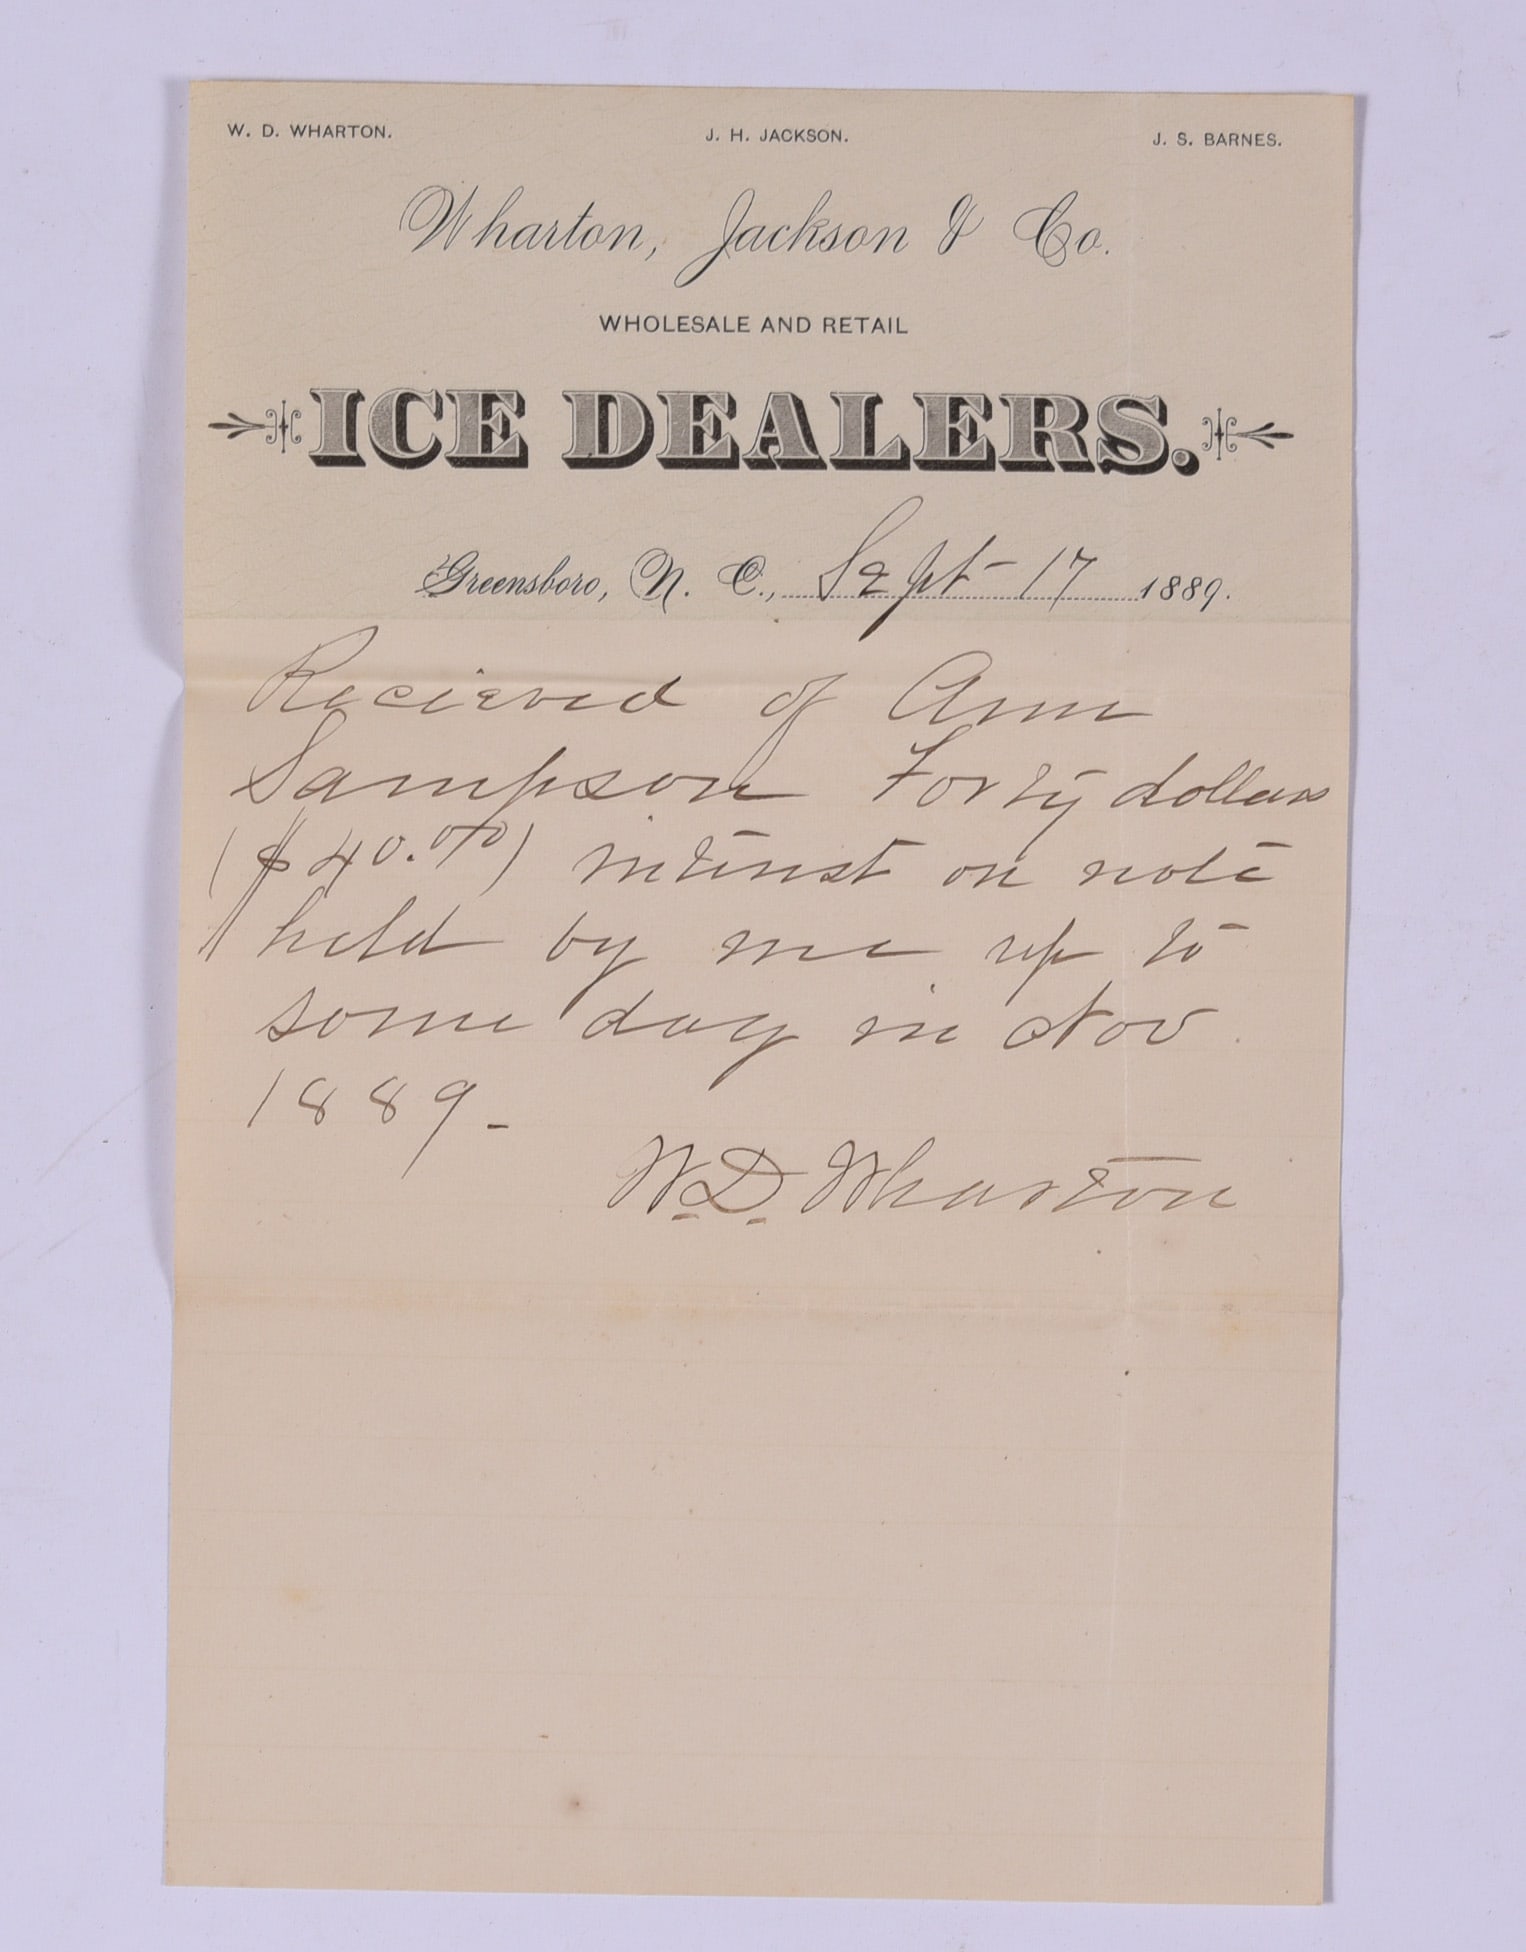 W. D. WHARTON. J. H. JACKSON. J. S. BARNES.
Wharton, Jackson & Co.
WHOLESALE AND RETAIL
ICE DEALERS.
Greensboro, N. C., Sept - 17 1889.
Recieved of Ann
Sampson Forty dollars
($40.00) interest on note
held by me up to
some day in Nov.
1889-
W.D. Wharton